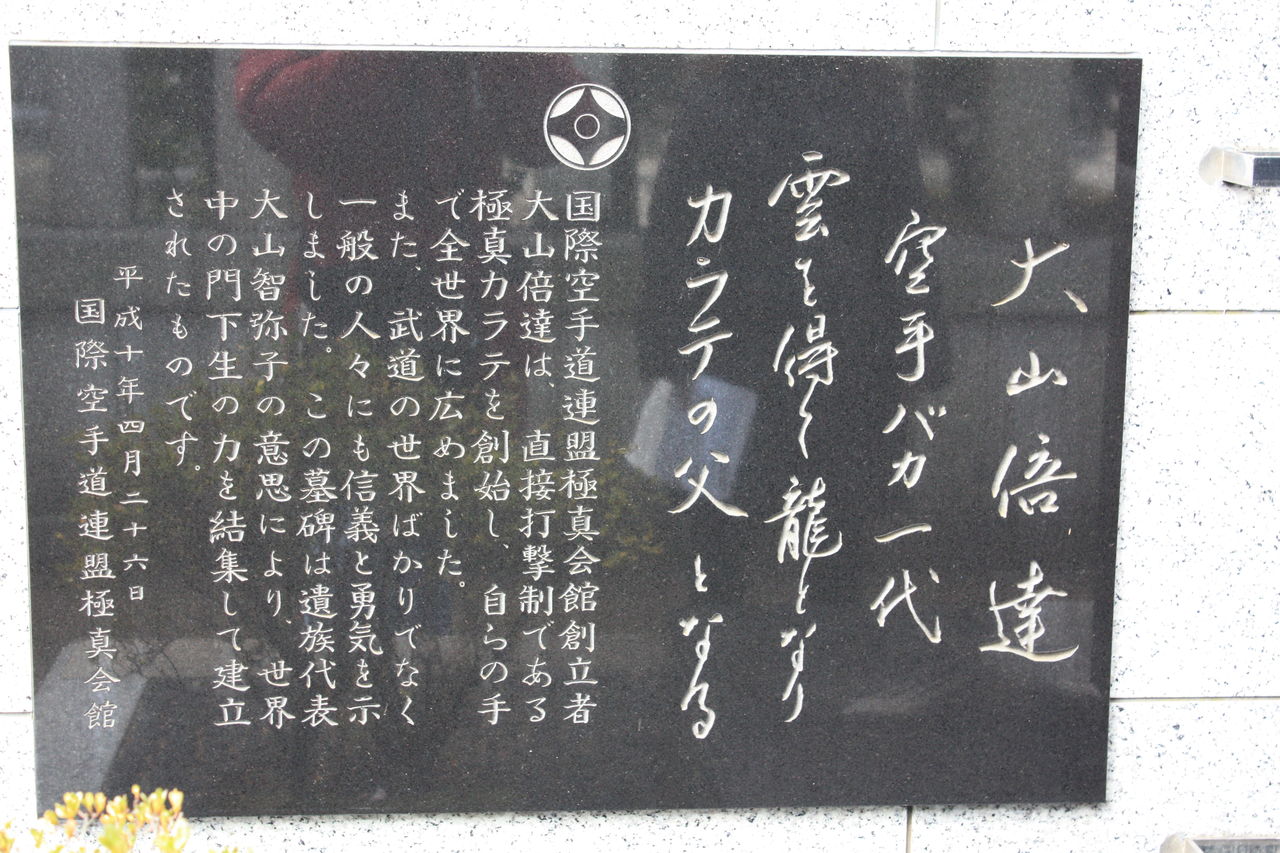 大山倍達
空手バカ一代
雲を得て龍となり
カラテの父となる
国際空手道連盟極真会館創立者
大山倍達は、直接打撃制である
極真カラテを創始し、自らの手
で全世界に広めました。
また、武道の世界ばかりでなく
一般の人々にも信義と勇気を示
しました。この墓碑は遺族代表
大山智弥子の意思により、世界
中の門下生の力を結集して建立
されたものです。
平成十年四月二十六日
国際空手道連盟極真会館